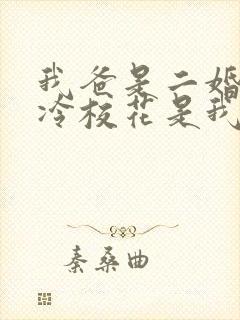 我爸是二婚
冷校花是我
秦桑曲